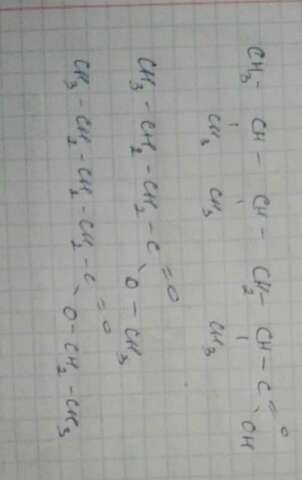 O
CH3 - CH - CH - CH2 - CH - C =
OH
CH3 CH3 CH3
CH3 - CH2 - CH2 - C = O
O - CH3
CH3 - CH2 - CH2 - CH2 - C = O
O - CH2 - CH3